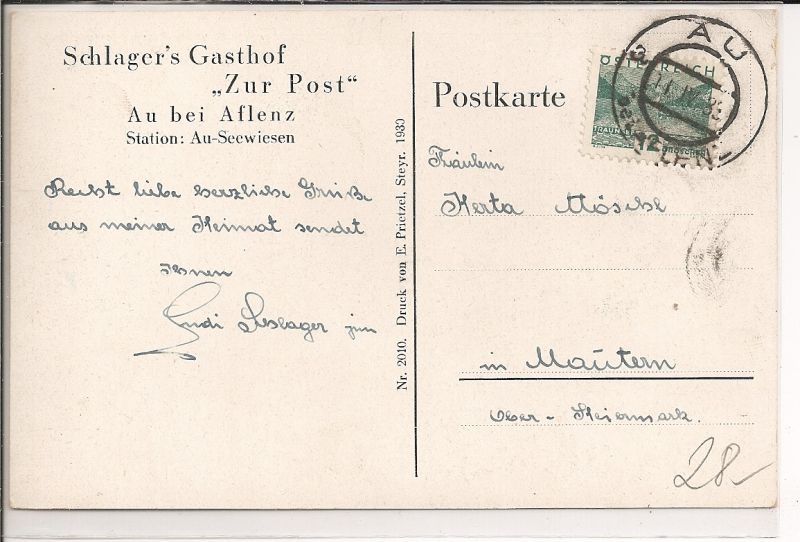 Schlager's Gasthof
„Zur Post“
Au bei Aflenz
Station: Au-Seewiesen
Recht liebe herzliche Grüße
aus meiner Heimat sendet
Ihnen
Schlager jun
Nr. 2010. Druck von E. Prietzel, Steyr. 1930
Postkarte
AU
ÖSTERREICH
12
Fräulein
Herta Mösche
in Mautern
Ober-Steiermark.
28